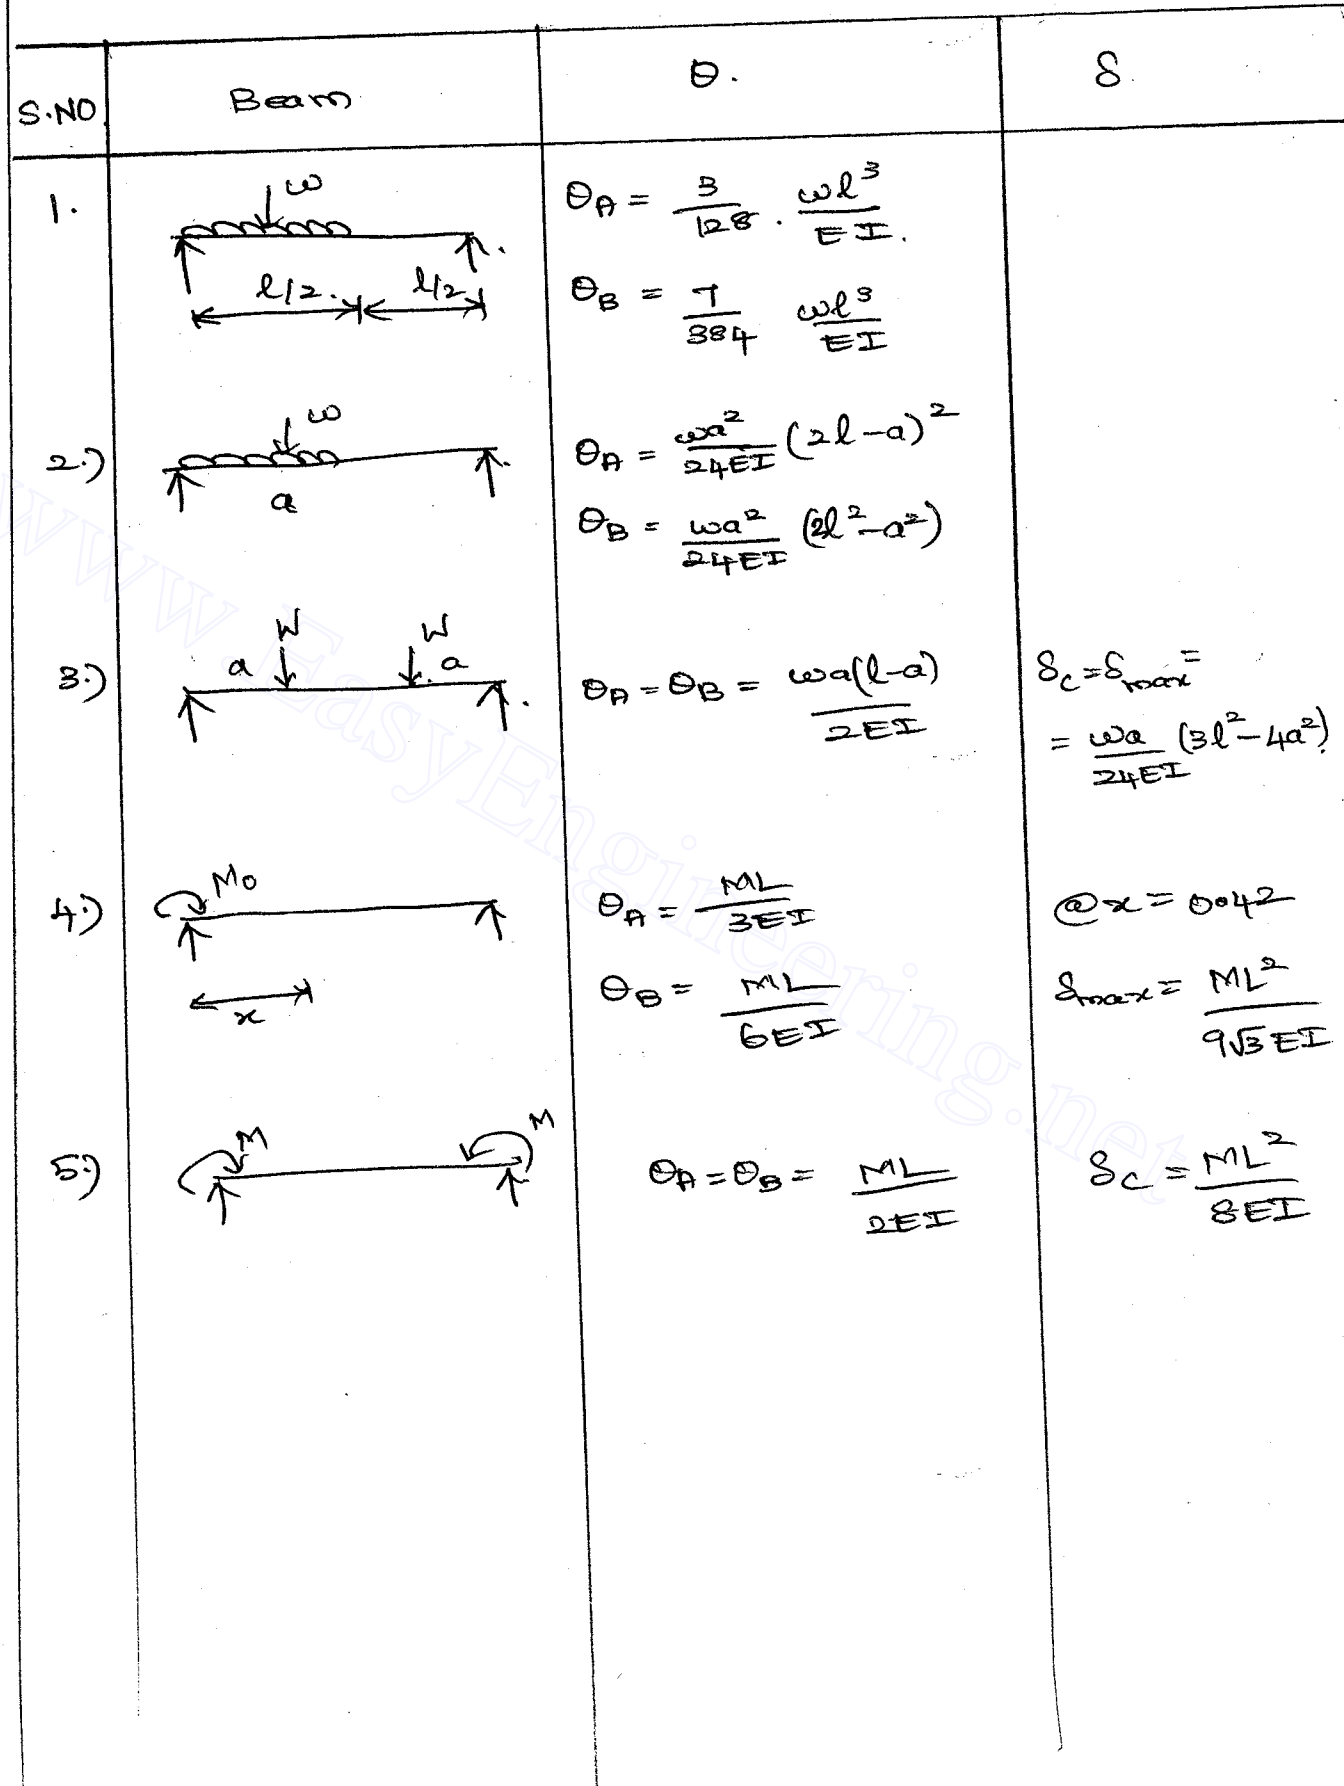 S.NO Beam θ. δ
1. w θA = 3/128 . wl³/EI.
l/2. l/2 θB = 7/384 wl³/EI
2.) w a θA = wa²/24EI (2l-a)²
θB = wa²/24EI (2l²-a²)
3.) a W W a θA = θB = wa(l-a)/2EI δc = δmax =
= wa/24EI (3l²-4a²).
4.) M₀ θA = ML/3EI @x = 0.42
x θB = ML/6EI δmax = ML²/9√3 EI
5.) M M θA = θB = ML/2EI δC = ML²/8EI
www.EasyEngineering.net